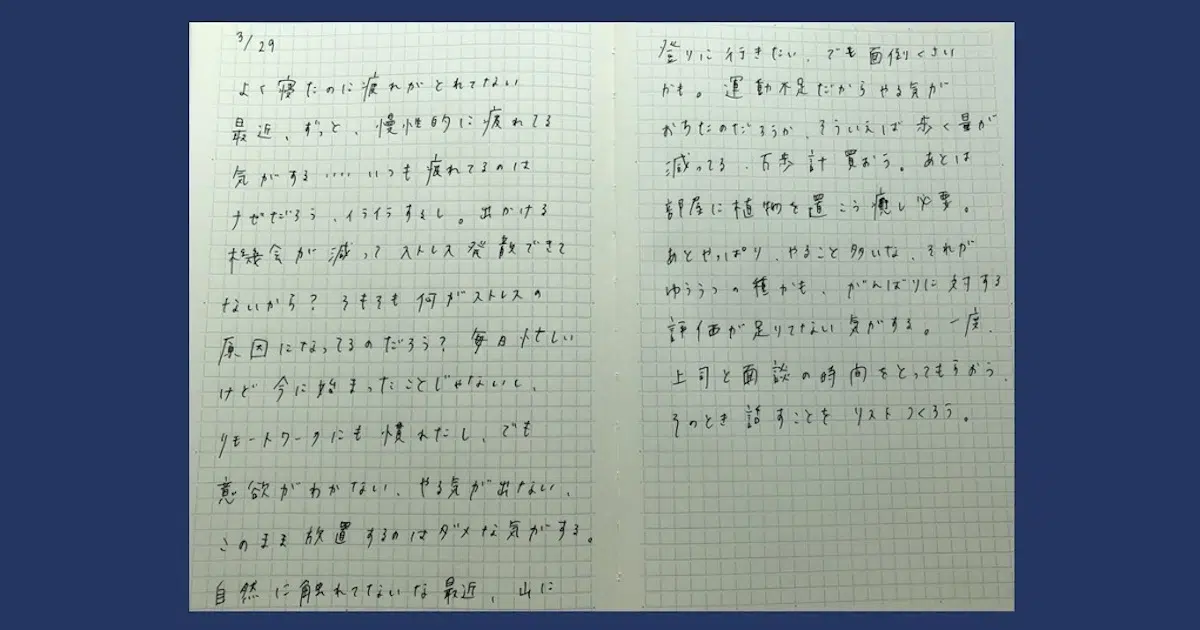 3/29
よく寝たのに疲れがとれてない
最近、ずっと、慢性的に疲れてる
気がする……いつも疲れてるのは
ナゼだろう、イライラするし。出かける
機会が減ってストレス発散できて
ないから？そもそも何がストレスの
原因になってるのだろう？毎日忙しい
けど今に始まったことじゃないし、
リモートワークにも慣れたし、でも
意欲がわかない、やる気が出ない、
このまま放置するのはダメな気がする。
自然に触れてないな最近、山に
登りに行きたい、でも面倒くさい
かも。運動不足だからやる気が
おちたのだろうか、そういえば歩く量が
減ってる、万歩計買おう。あとは
部屋に植物を置こう癒し必要。
あとやっぱり、やること多いな、それが
ゆううつの種かも、がんばりに対する
評価が足りてない気がする。一度、
上司と面談の時間をとってもらおう、
そのとき話すことをリストつくろう。